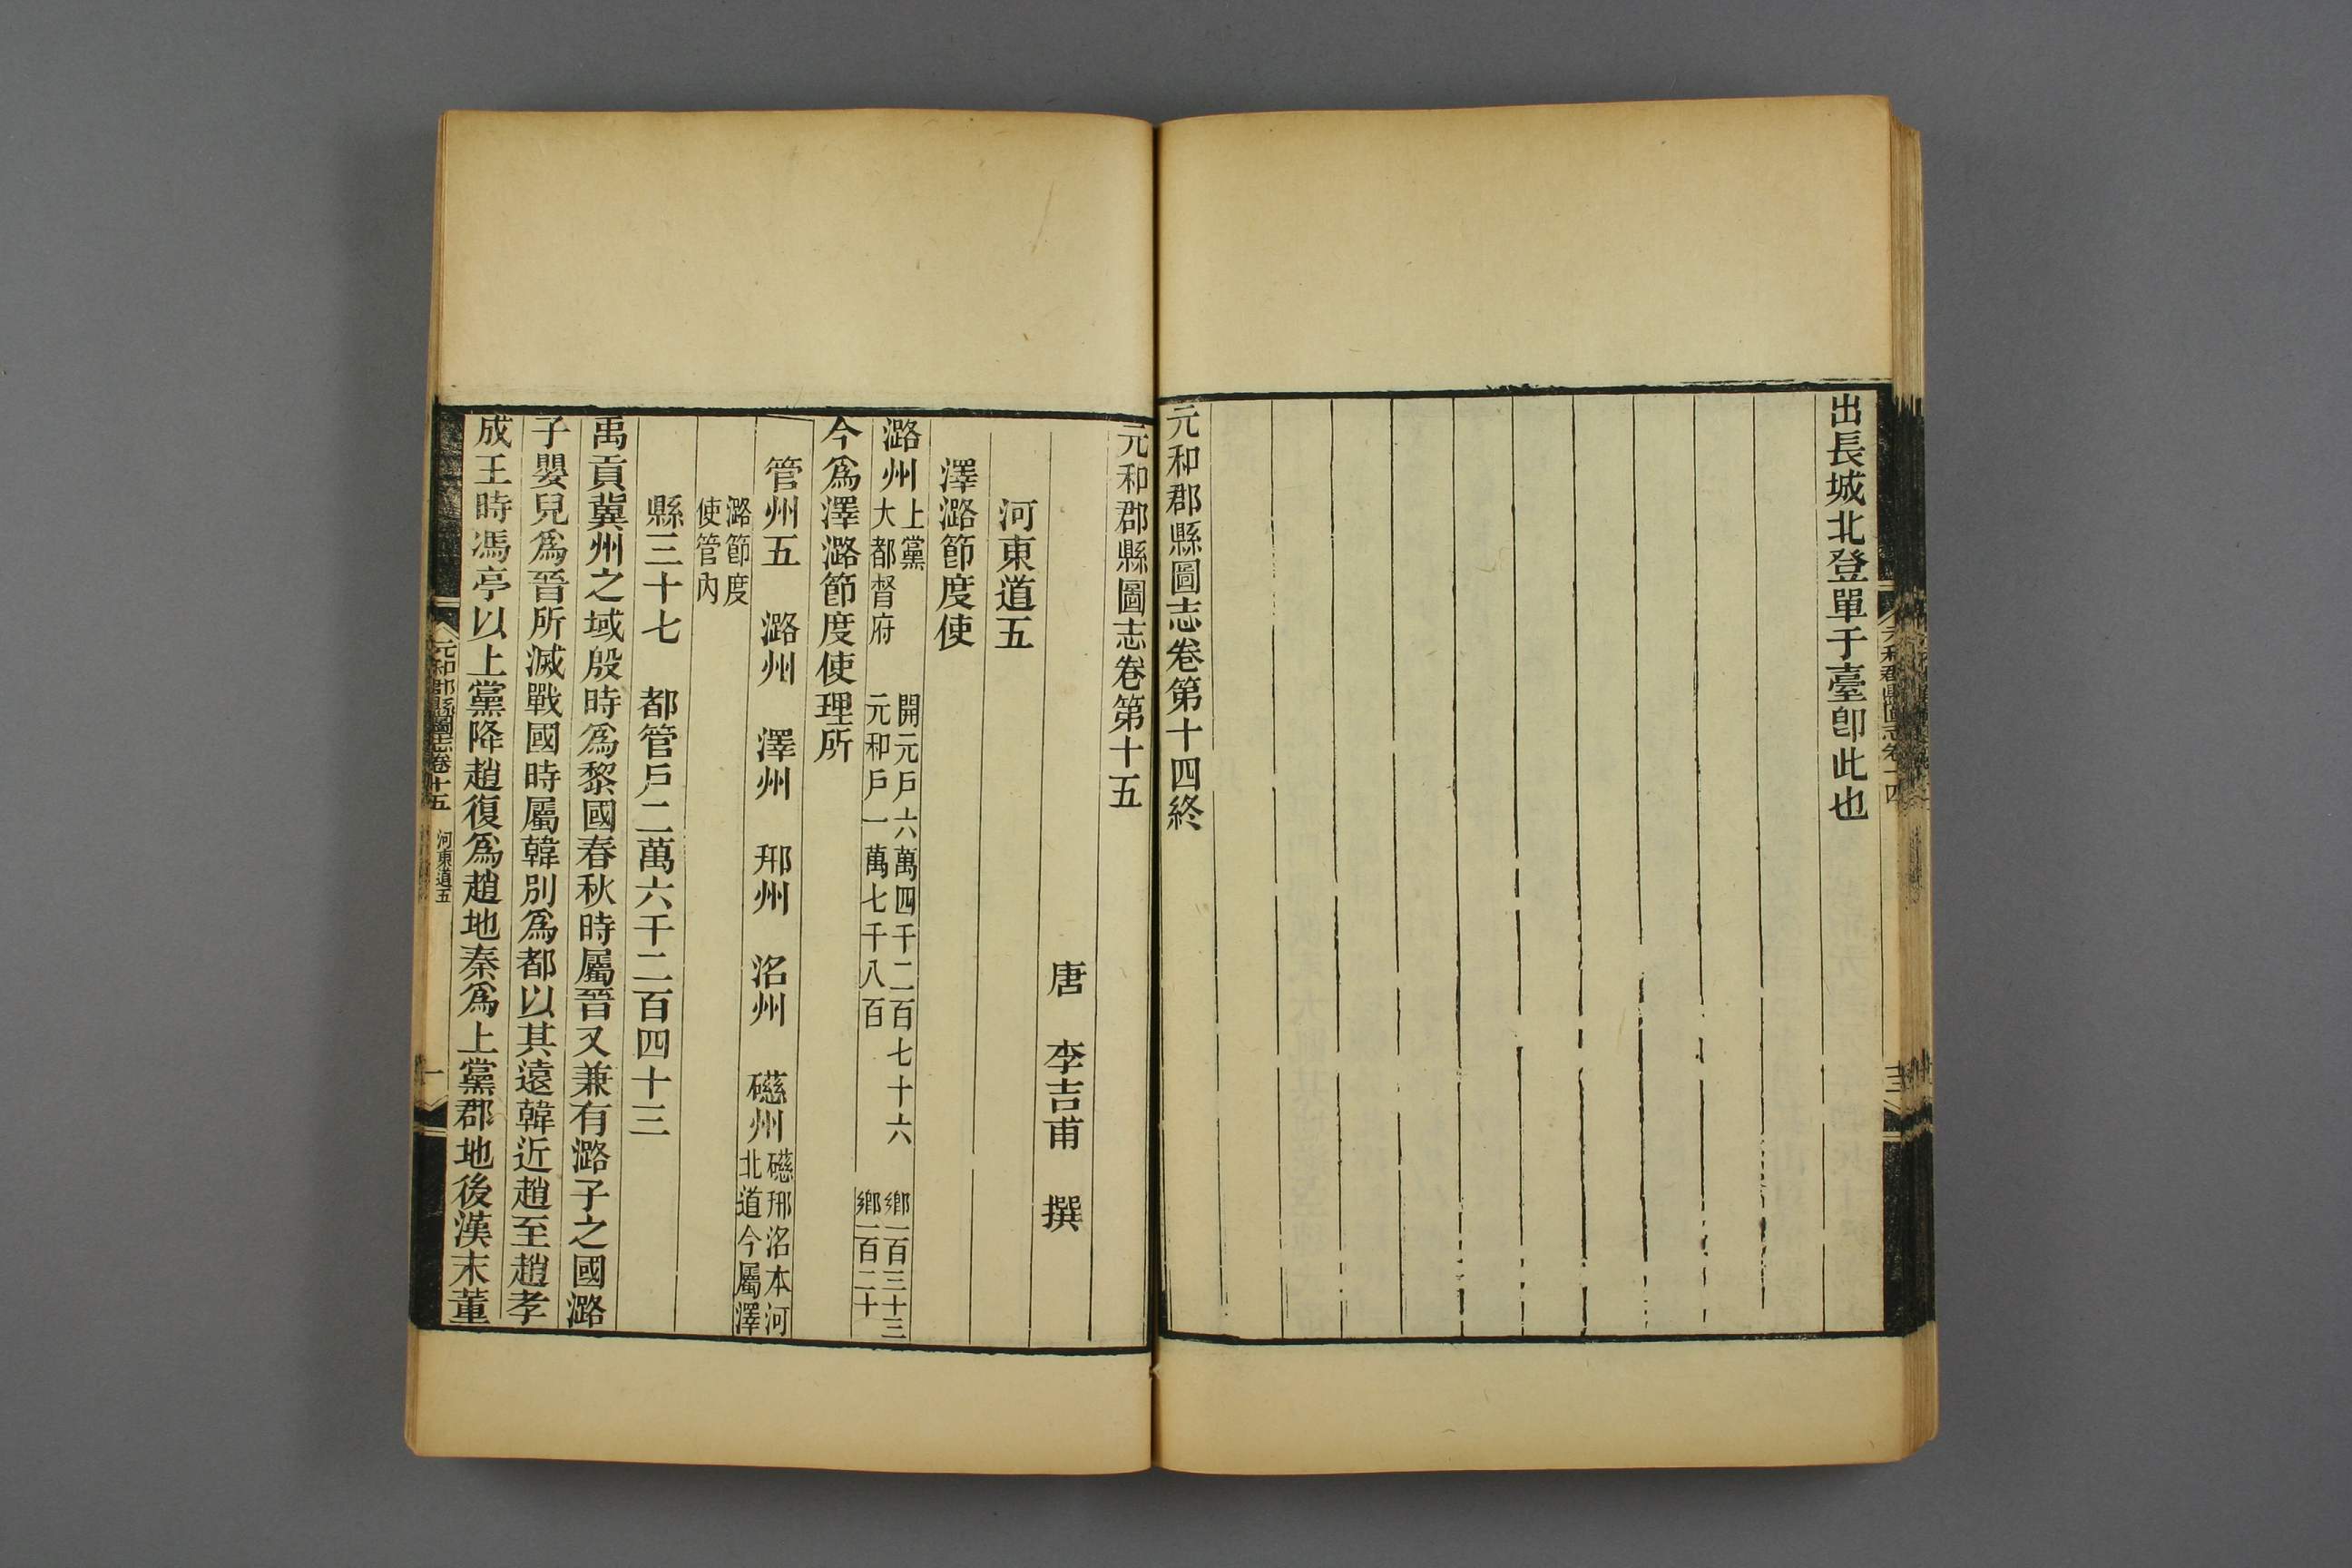 出長城北登單于臺卽此也
元和郡縣圖志卷第十四終
元和郡縣圖志卷第十五
唐 李吉甫 撰
河東道五
澤潞節度使
潞州上黨大都督府 開元戶六萬四千二百七十六 元和戶一萬七千八百 鄉一百三十三 鄉一百二十
今爲澤潞節度使理所
管州五 潞州 澤州 邢州 洺州 磁州磁邢洺本河北道今屬澤
潞節度使管內
縣三十七 都管戶二萬六千二百四十三
禹貢冀州之域殷時爲黎國春秋時屬晉又兼有潞子之國潞
子嬰兒爲晉所滅戰國時屬韓別爲都以其遠韓近趙至趙孝
成王時馮亭以上黨降趙復爲趙地秦爲上黨郡地後漢末董
元和郡縣圖志卷十五 河東道五 一